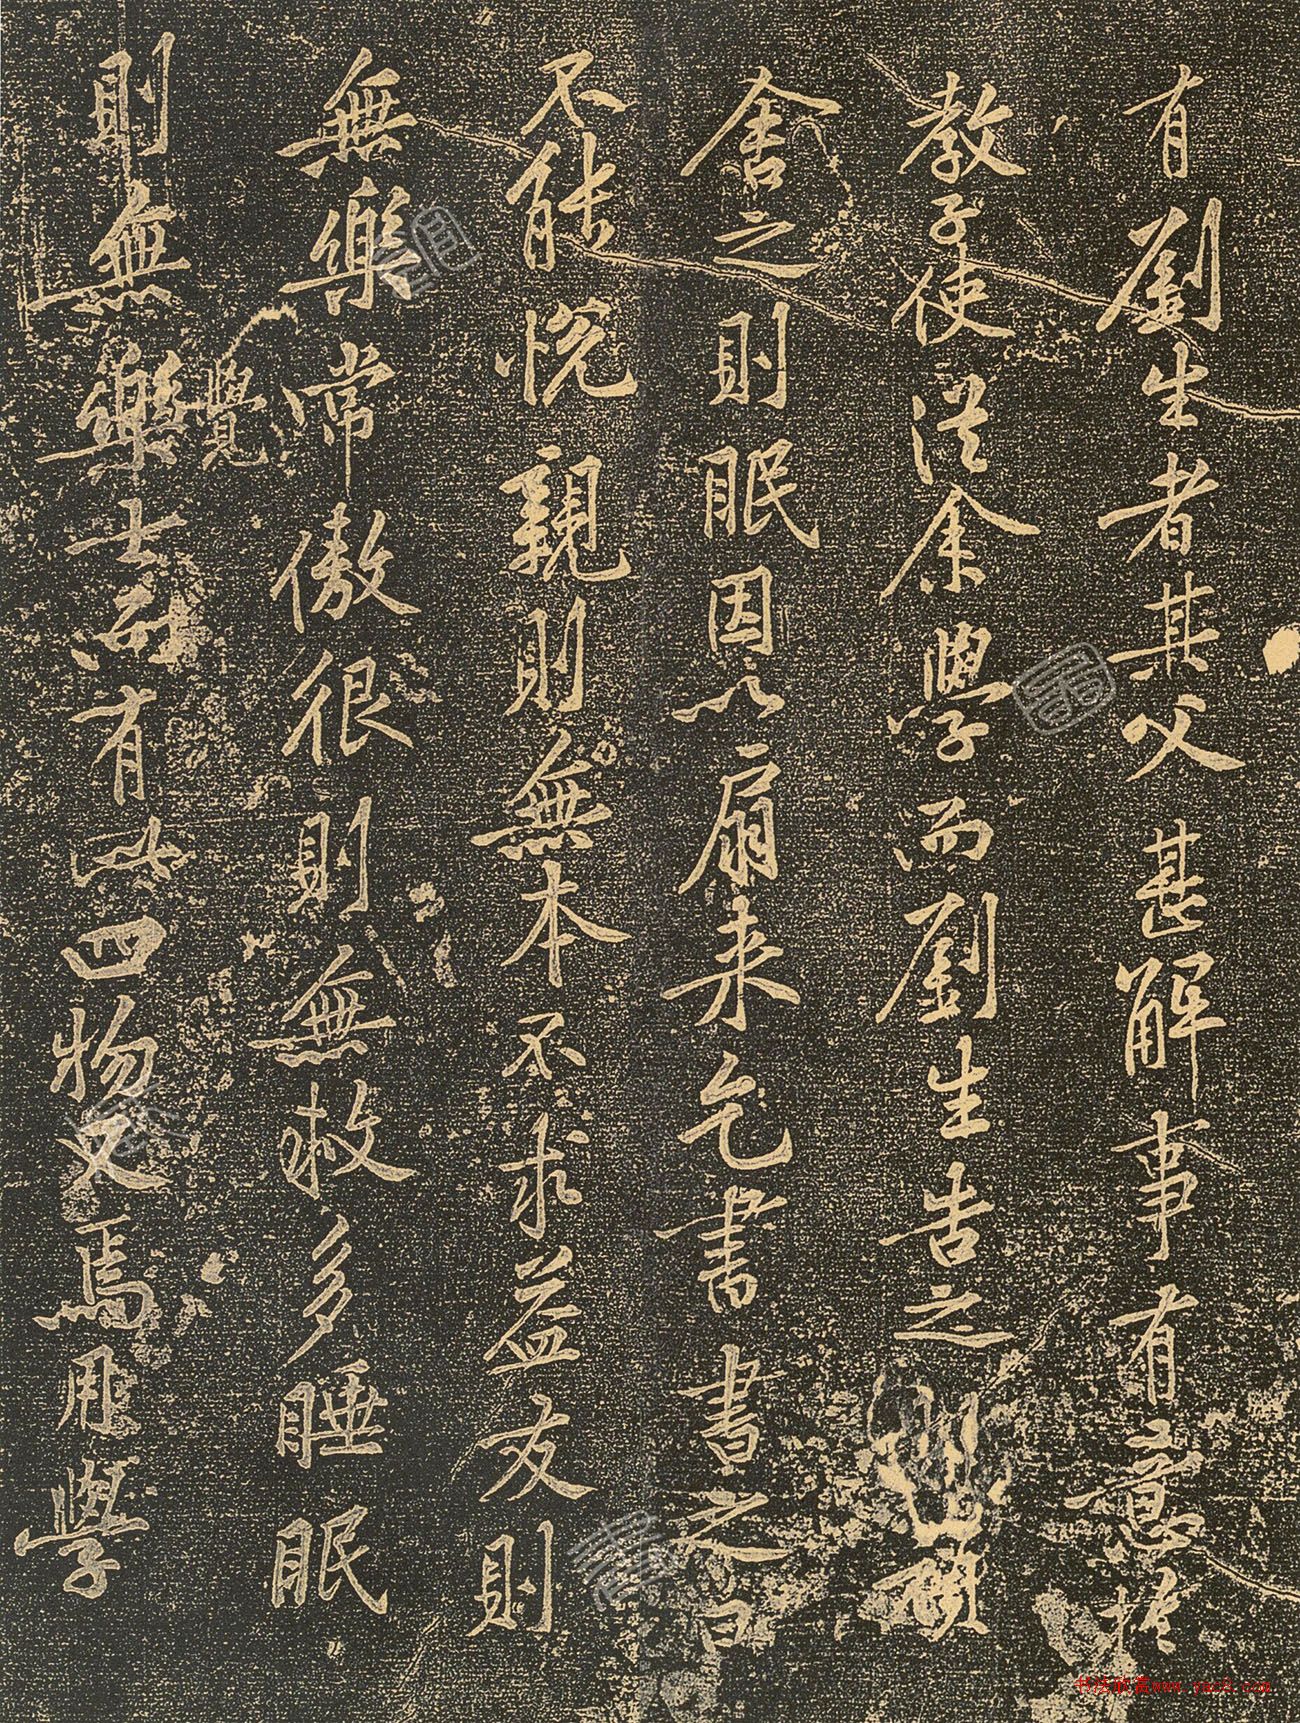 有劉生者其父甚解事有意扵
教子使従余學而劉生告之則頑
舍之則眠因以扇来乞書書之曰
不能悦親則無本不求益友則
無樂常傲很則無救多睡眠
覺
則無樂士而有此四物又焉用學
书法欣赏www.yac8.com